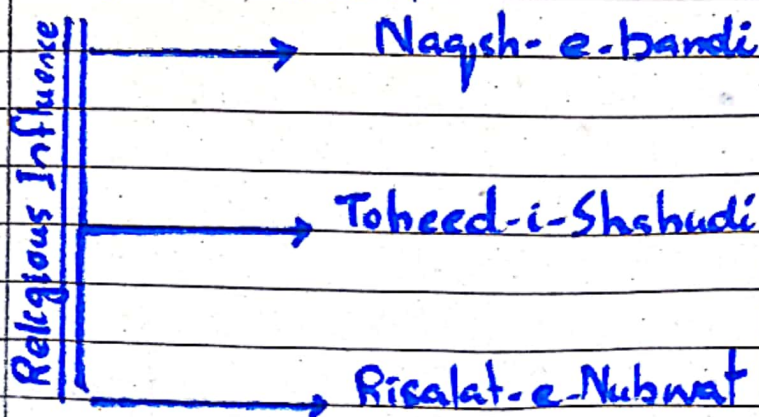 Religious Influence
Naqsh-e-bandi
Toheed-i-Shahudi
Risalat-e-Nubwat